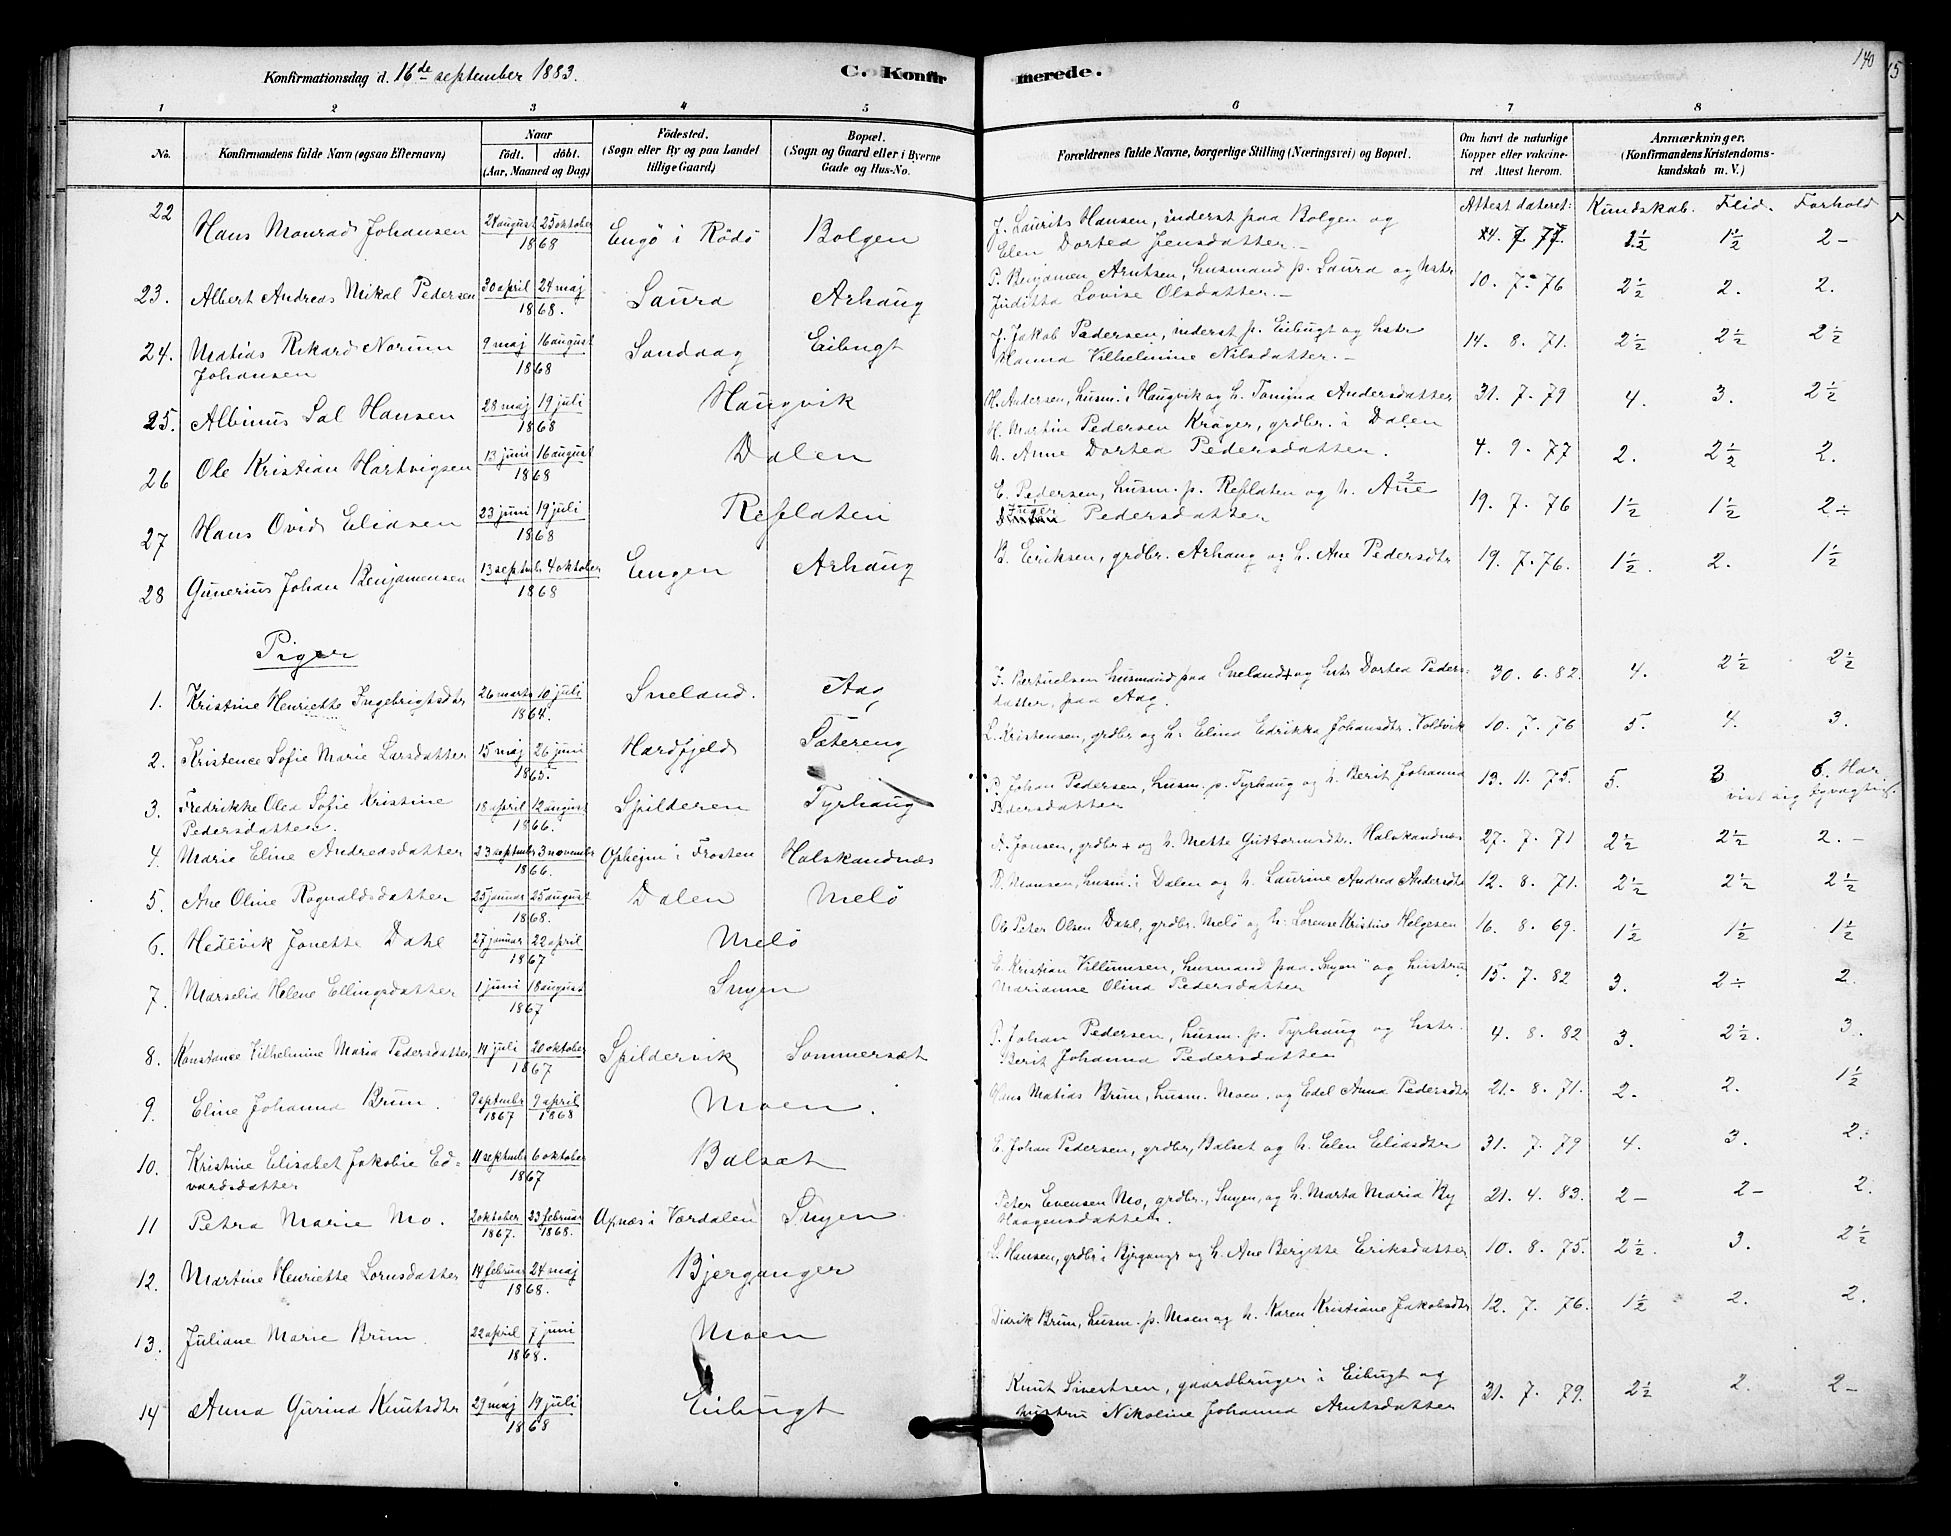 Konfirmationsdag d. 16de september 1883. C. Konfirmerede. 140
1 2 3 4 5 6 7 8
No. Konfirmandens fulde Navn (ogsaa Efternavn) Naar födt. döbt. (Aar, Maaned og Dag) Födested. (Sogn eller By og paa Landet tillige Gaard) Bopæl. (Sogn og Gaard eller i Byerne Gade og Hus-No. Forældrenes fulde Navne, borgerlige Stilling (Næringsvei) og Bopæl. Om havt de naturlige Kopper eller vakcineret. Attest herom. Anmærkninger, (Konfirmandens Kristendomskundskab m. V.)
Attest dateret: Kundskab. Flid. Forhold
22 Hans Monrad Johansen 24 august 25 oktober 1868 Engö i Rödö Bolgen J. Laurits Hansen, inderst paa Bolgen og
Elen Dorted Jensdatter. — 77 1½ 2 —
23. Albert Andreas Mikal Pedersen 30 april 24 maj 1868. Saura Arhaug P. Benjamen Arntsen, husmand p. Saura og hstr
Juditta Lovise Olsdatter. — 10. 7. 76 2½ 2. 2.
24. Matias Rikard Norum 9 maj 16 august 1868 Sandaag Eibugt J. Jakob Pedersen, inderst p. Eibugt og hstr
Johansen Hanna Vilhelmine Nilsdatter. — 14. 8. 71. 2½ 2½ 2½
25. Albinus Sal Hansen 28 maj 19 juli 1868 Haugvik H. Andersen, husm. i Haugvik og h. Tomina Andersdatter 31. 7. 79 4. 3. 2½
26 Ole Kristian Hartvigsen 13 juni 16 august 1868 Dalen H. Martin Pedersen Kråger, grdbr. i Dalen
h. Anne Dorted Pedersdatter. 4. 9. 77 2. 2½ 2.
27 Hans Ovid Eliasen 23 juni 19 juli 1868 Resflaten E. Pedersen, husm. p. Resflaten og h. Ane
Inger Pedersdatter 19. 7. 76 1½ 1½ 2÷
28 Gunerius Johan Benjamensen 13 septmbr 4 oktober 1868 Engen Arhaug B. Eriksen, grdbr. Arhaug og h. Ane Pedersdtr 19. 7. 76. 1½. 2. 1½
Piger
1. Kristine Henriette Ingebrigtsdtr 26 marts 10 juli 1864. Sneland. Aag J. Bertuelsen husmand paa Sneland + og hstr Dorted Peders-
datter, paa Aag. 30. 6. 82. 4. 2½ 2½
2. Kristence Sofie Marie Larsdatter 15 maj 26 juni 1865. Hardfjeld Sætereng L. Kristensen, grdbr og h. Elina Edrikka Johansdtr. Voldvik 10. 7. 76 5. 4. 3.
3. Fredrikke Olea Sofie Kristine 18 april 12 august 1866 Spilderen Tyrhaug P. Johan Pedersen, husm. p. Tyrhaug og h. Berit Johanna
Pedersdatter. Pedersdatter 13. 11. 75. 5. 3 6. Har
vist sig
4. Marie Eline Andreasdatter 23 septmbr 3 november 1866. Opheim i Frosten Halskandnæs A. Jonsen, grdbr + og h. Mette Guttormsdtr. Halskandnæs 27. 7. 71 2½ 2½ 2. —
5. Ane Oline Ragnaldsdatter 25 januar 25 august 1868. Dalen Melö R. Monsen, husm. i Dalen og h. Laurine Andrea Andersdtr 12. 8. 71. 2½ 2½ 2½
6. Hedevik Jonette Dahl 27 januar 22 april 1867 Melö Ole Peter Olsen Dahl, grdbr. Melö og h. Lorense Kristine Helgesen 16. 8. 69. 1½ 1½ 1½
7. Marselia Helene Ellingsdatter 1 juni 18 august 1867 Snyen E. Kristian Villumsen, husmand paa „Snyen" og hustru
Marianne Olina Pedersdatter 15. 7. 82 3. 2÷ 2.
8. Konstance Vilhelmine Maria Pedersdatter 14 juli 20 oktober 1867 Spildervik Sommersæt P. Johan Pedersen, husm. p. Tyrhaug og hstr.
Berit Johanna Pedersdatter 4. 8. 82 3. 2½. 3.
9. Eline Johanna Brun. 9 septmbr 1867 9 april 1868 Moen. Hans Matias Brun, husm. Moen, og Edel Anna Pedersdtr 21. 8. 71. 2. 2. 1½
10. Kristine Elisabet Jakobie Ed=
vardsdatter 11 septmbr 6 oktober 1867 Balsæt E. Johan Pedersen, grdbr, Balset og h. Elen Eliasdtr 31. 7. 79 4. 3. 2.
11 Petra Marie Mo. 2 oktober 1867. 23 februar 1868. Apnæs i Værdalen Snyen. Peter Evensen Mo, grdbr., Snyen, og h. Marta Maria By
Haagensdatter. 21. 4. 83. 2— 2— 2.
12. Martine Henriette Lornsdatter 14 februar 24 maj 1868. Bjerganger L. Hansen, grdbr i Bjrgangr og h. Ane Bergitte Eriksdatter 10. 8. 75. 2½. 3. 2½
13. Juliane Marie Brun. 22 april 7 juni 1868. Moen Didrik Brun, husm. p. Moen og h. Karen Kristiane Jakobsdtr 12. 7. 76. 1½ 2. 2.
14 Anna Gurina Knutsdtr 29 maj 19 juli 1868 Eibugt Knut Sivertsen, gaardbruger i Eibugt og
hustru Nikoline Johanna Arntsdatter 31. 7. 79. 2½ 2. 2—